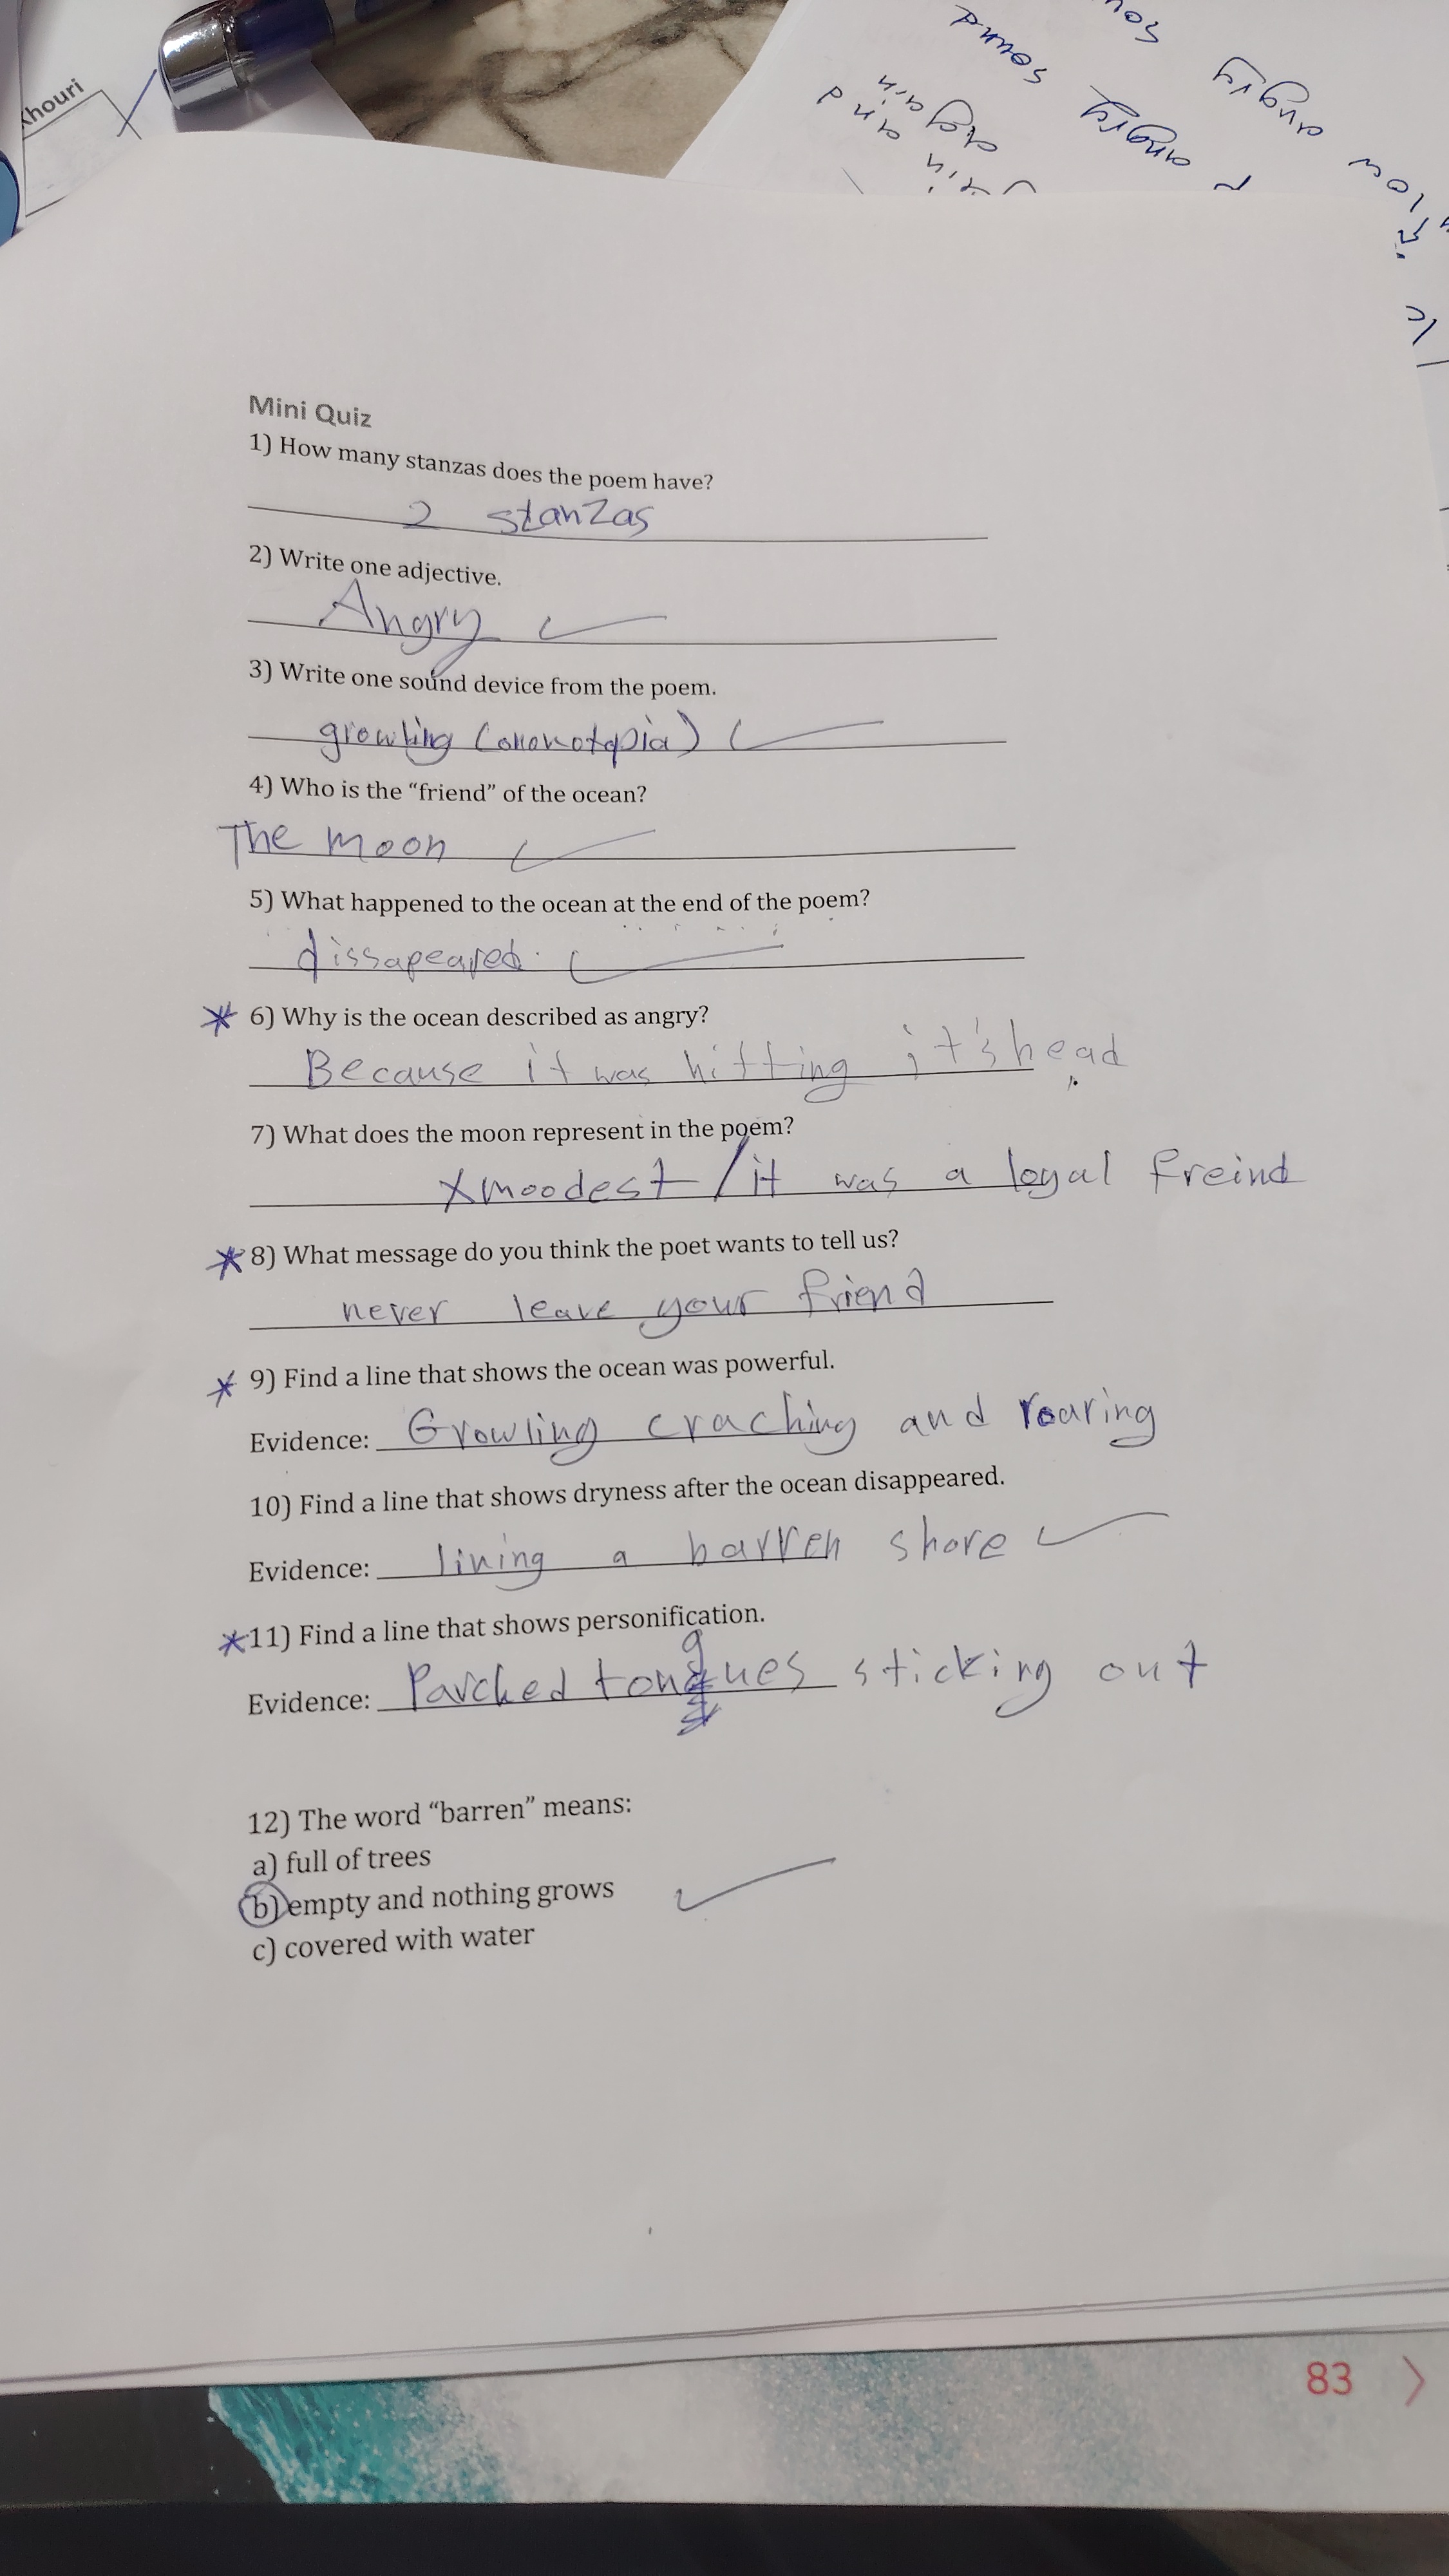 Khouri
angry sound
angry
sound
again
and
low
Mini Quiz
1) How many stanzas does the poem have?
2 stanzas
2) Write one adjective.
Angry
3) Write one sound device from the poem.
growling (ononotopia)
4) Who is the “friend” of the ocean?
The moon
5) What happened to the ocean at the end of the poem?
dissapeared.
* 6) Why is the ocean described as angry?
Because it was hitting it's head
7) What does the moon represent in the poem?
xmoodest / it was a loyal freind
* 8) What message do you think the poet wants to tell us?
never leave your friend
* 9) Find a line that shows the ocean was powerful.
Evidence: Growling craching and roaring
10) Find a line that shows dryness after the ocean disappeared.
Evidence: lining a barren shore
* 11) Find a line that shows personification.
Evidence: Parched tongues sticking out
12) The word “barren” means:
a) full of trees
b) empty and nothing grows
c) covered with water
83